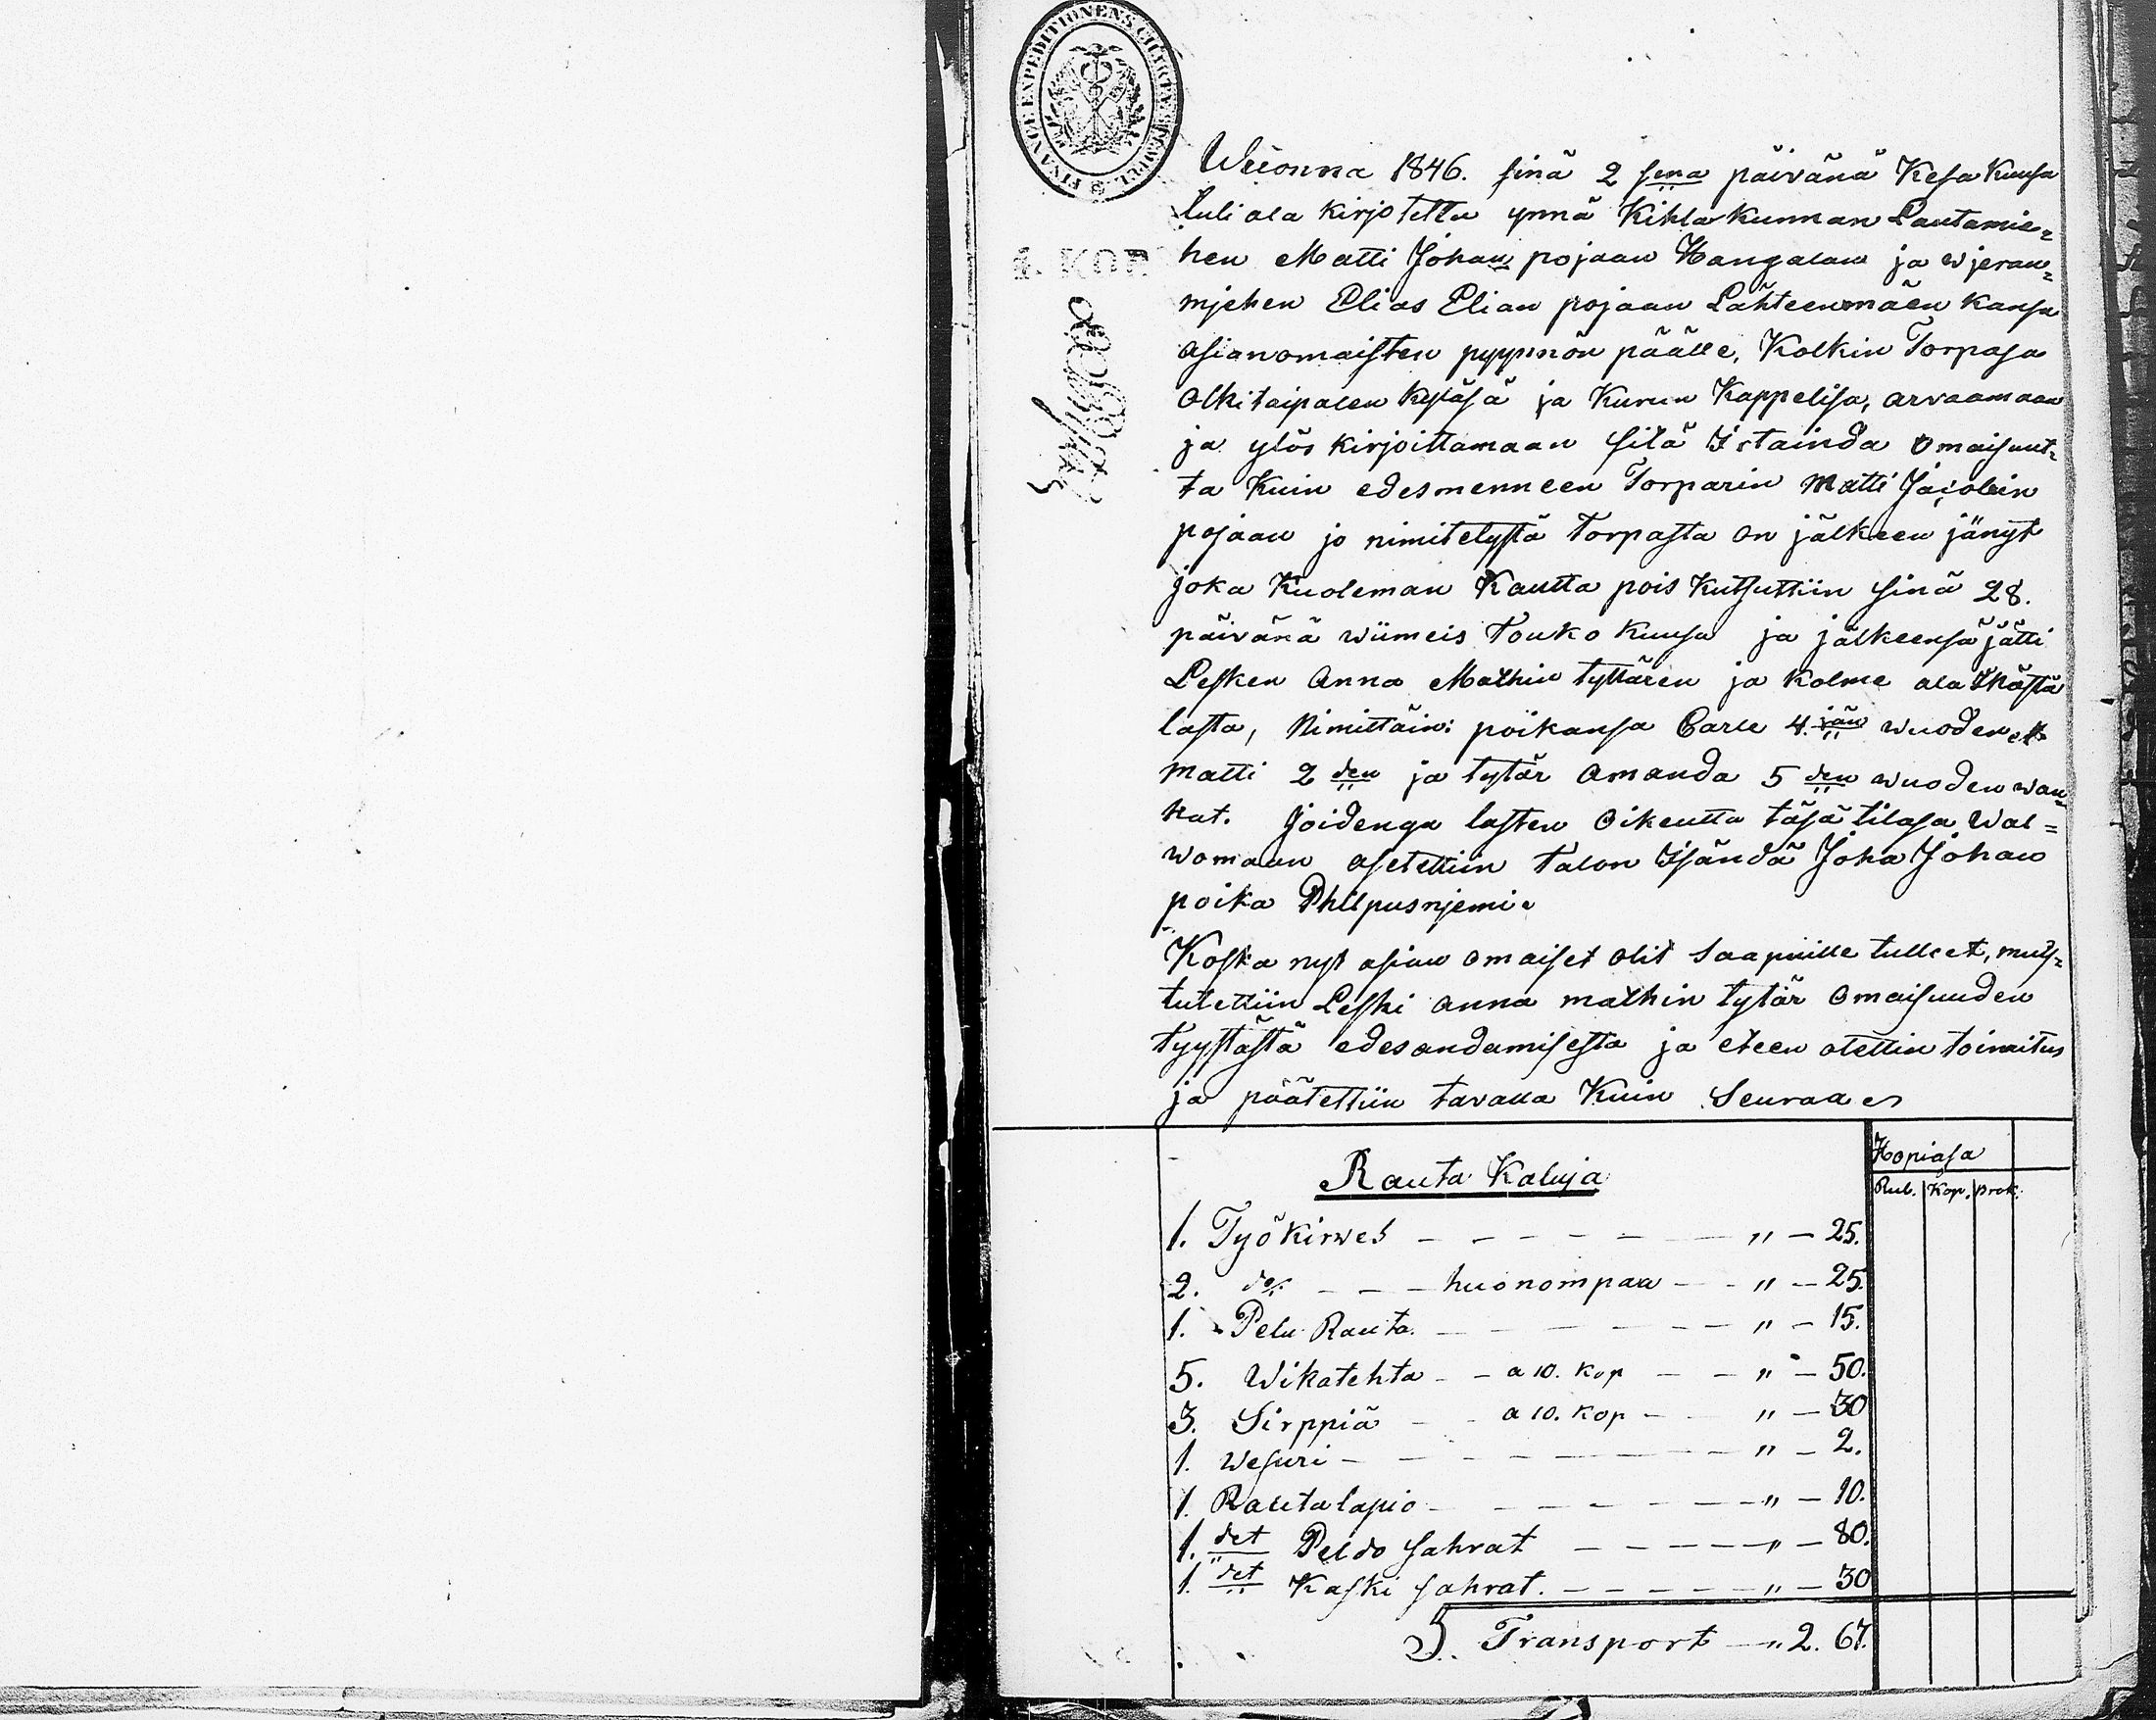 FINANCE EXPEDITIONENS
1. KOP
Wuonna 1846. sinä 2 sena päivänä Kesa Kuusa
tuli ala kirjotettu ynnä Kihlakunnan Lautamie=
hen Matti Johan pojaan Hangalan ja wjeran=
mjehen Elias Elian pojaan Lähteenmäen kansa
asianomaisten pyynnön päälle, Kolkin Torpasa
Olkitaipalen kyläsä ja Kurun Kappelisa, arvaamaan
ja ylös kirjoittamaan sitä Irtainda omaisuut=
ta Kuin edesmenneen Torparin Matti Jacobin
pojaan jo nimitetystä torpasta on jälkeen jänyt
joka Kuoleman Kautta pois Kutsuttiin sinä 28.
päivänä wiimeis Touko Kuusa ja jälkeensä jätti
Lesken Anna Mathin tyttären ja Kolme ala Ikästä
lasta, Nimittäin: poikansa Carle 4. jän wuoden
Matti 2 den ja tytär Amanda 5 den wuoden wan=
hat. Joidenga lasten Oikeutta täsä tilasa Wal=
womaan asetettiin Talon Isändä Joha Johan
poika Philpusnjemi
Koska nyt asian omaiset olit saapuille tulleet, muis=
tutettiin Leski Anna mathin tytär Omaisuuden
tyystästä edesandamisesta ja eteen otettiin toimitus
ja päätettiin tavalla Kuin Seuraa
Rauta Kaluja
Hopiasa
Rub. Kop. brok.
1. Työ Kirwes — — — — — — „ — 25.
2. do — — — huonompaa — — „ — 25.
1. Pelu Rauta — — — — — — „ — 15.
5. Wikatehta — — a 10. kop — — „ — 50.
3. Sirppiä — — a 10. kop — — „ — 30
1. Wesuri — — — — — — „ — 2.
1. Rautalapio — — — — — — „ — 10.
1. det Peldo sahrat — — — — — „ — 80.
1. det Kaski sahrat. — — — — — „ — 30
Transport — „ 2. 67.